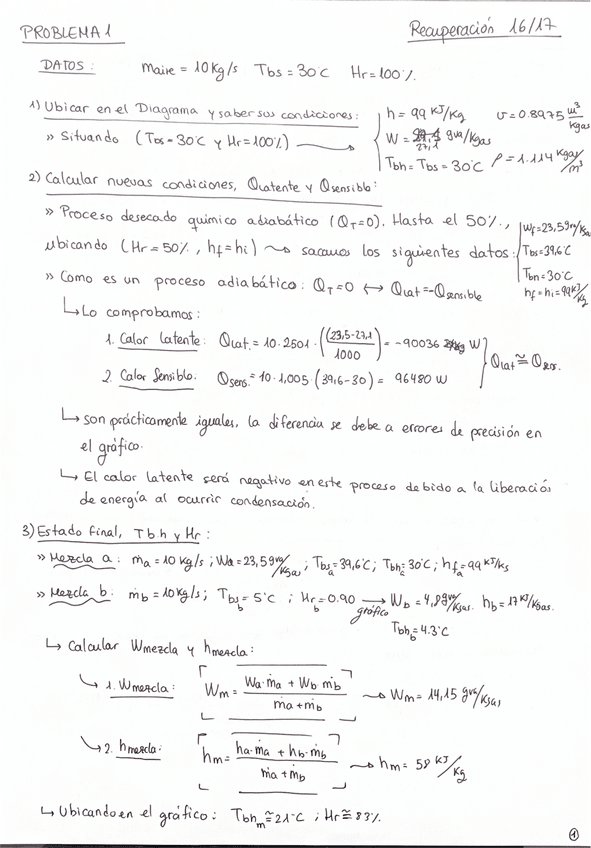 PROBLEMA 1
Recuperación 16/17
DATOS: ṁaire = 10 Kg/s Tbs = 30°C Hr = 100%
1) Ubicar en el Diagrama y saber sus condiciones:
» Situando (Tbs = 30°C y Hr = 100%) →
h = 99 KJ/Kg v = 0.8975 m³/Kgas
W = 27,1 gva/Kgas
Tbh = Tbs = 30°C ρ = 1.114 Kgas/m³
2) Calcular nuevas condiciones, Qlatente y Qsensible:
» Proceso desecado químico adiabático (QT=0). Hasta el 50%,
ubicando (Hr = 50%, hf = hi) → sacamos los siguientes datos:
Wf = 23,5 gva/Kgas
Tbs = 39,6°C
Tbh = 30°C
hf = hi = 99 KJ/Kg
» Como es un proceso adiabático: QT = 0 ↔ Qlat = -Qsensible
↳ Lo comprobamos:
1. Calor latente: Qlat. = 10·2501·((23,5-27,1)/1000) = -90036 W
2. Calor Sensible: Qsens. = 10·1,005·(39,6-30) = 96480 W
Qlat ≅ Qsen.
↳ son prácticamente iguales, la diferencia se debe a errores de precisión en
el gráfico.
↳ El calor latente será negativo en este proceso debido a la liberación
de energía al ocurrir condensación.
3) Estado final, Tbh y Hr:
» Mezcla a: ṁa = 10 kg/s; Wa = 23,5 gva/Kgas; Tbsa = 39,6°C; Tbha = 30°C; hfa = 99 KJ/Kg
» Mezcla b: ṁb = 10 Kg/s; Tbsb = 5°C; Hrb = 0.90 → gráfico Wb = 4,8 gva/Kgas. hb = 17 KJ/Kgas.
Tbhb = 4.3°C
↳ Calcular Wmezcla y hmezcla:
↳ 1. Wmezcla: Wm = (Wa·ṁa + Wb·ṁb)/(ṁa+ṁb) → Wm = 14,15 gva/Kgas
↳ 2. hmezcla: hm = (ha·ṁa + hb·ṁb)/(ṁa+ṁb) → hm = 58 KJ/Kg
↳ Ubicando en el gráfico: Tbhm ≅ 21°C; Hr ≅ 83%
1